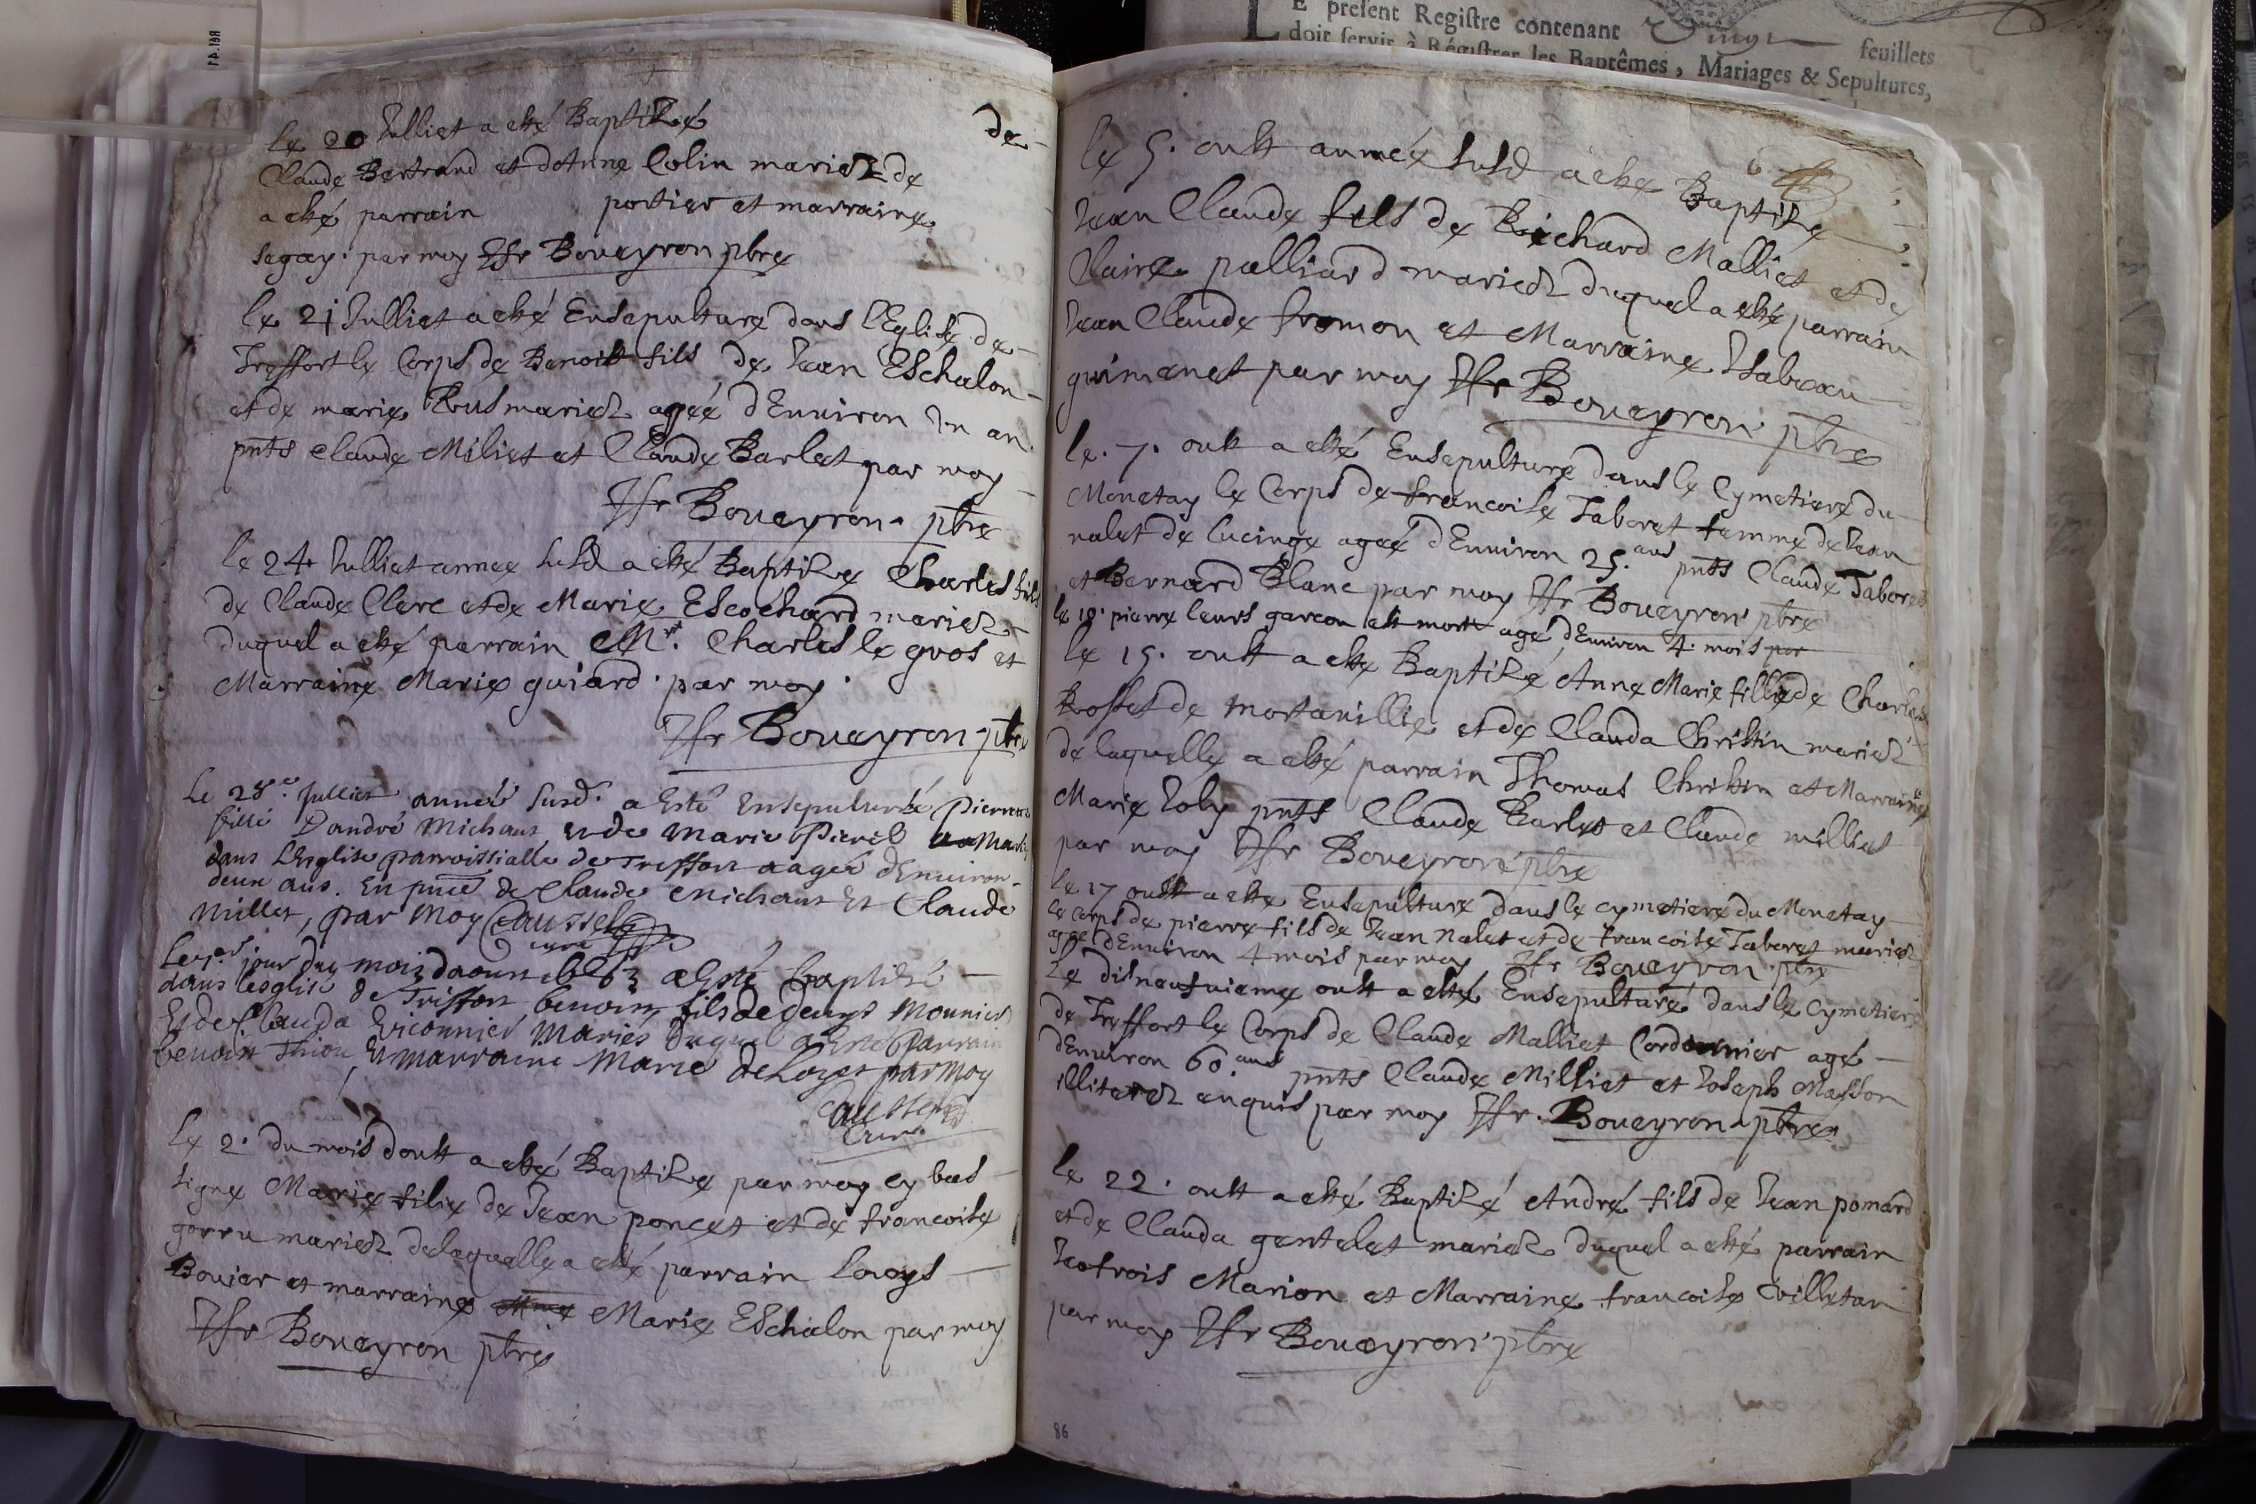 le 20 Julliet a esté Baptizé de
Claude Bertrand et dAnne Colin mariez de
a esté parrain portier et marraine
segay. par moy Jfr Boueyron pbre
le 21 Julliet a esté Ensepulturé dans lEglise de
Treffort le Corps de Benoist fils de Jean Eschalon
et de marie Rus mariez agée dEnuiron Vn an
pnts claude Miliet et Claude Barlet par moy
Jfr Boueyron. pbre
le 24 Julliet annee susd a esté Baptize Charles fils
de Claude Clerc et de Marie Escochard mariez
duquel a esté parrain Mr. Charles le gros et
Marraine Marie guiard. par moy.
Jfr Boueyron pbre
Le 28e. Julliet année susd. a Esté Ensepulturée Pierrette
fille D'andré Michaut et de Marie
dans LEsglise parroissialle de Treffort aagée dEnuiron
deux ans. En pnce de Claude Michaut Et Claude
Millet, par Moy Caussel
curé
Le 1er jour du mois daoust 1663 a Esté baptisé
dans lesglise de Treffort benoist fils de denys Mounier
Et de Clauda Mariés duquel a Esté Parrain
benoist Thion Et marraine Marie deLoget par Moy
Caussel
Curé
le 2. du mois doust a esté Baptize par moy cy bas
signe Marie filie de Jean poncet et de francoise
gorru mariez delaquelle a esté parrain Loays
Bouier et marraine Marie Eschalon par moy
Jfr Boueyron pbre
E present Registre contenant Vingt feuillets
doit servir à Régistrer les Baptêmes, Mariages & Sepultures,
6
le 5. oust année susd a este Baptize
Jean Claude fils de Richard Malliet et de
Claire palliard mariez duquel a esté parrain
Jean Claude fromon et Marraine Isabeau
guimenet par moy Jfr Boueyron. pbre
le. 7. oust a esté Ensepulture dans le Cymetiere du
Monetay le Corps de francoise Taboret femme de Jean
nalet de lucinge agee dEnuiron 25. ans pnts Claude Taboret
et Bernard Blanc par moy Jfr Boueyron pbre
le 18. pierre leurs garcon est mort agé dEnuiron 4. mois par
le 15. oust a este Baptizé Anne Marie fillie de Charles
Rosset de mortauillie et de Clauda Christin mariez
de laquelle a esté parrain Thomas Christin et Marraine
Marie Joly pnts Claude Barlet et Claude milliet
par moy Jfr Boueyron pbre
le 17 oust a este Ensepulture dans le cymetiere du Monetay
le Corps de pierre fils de Jean Nalet et de francoise Taboret mariez
agé dEnuiron 4 mois par moy Jfr Boueyron pbre
Le disneufuieme oust a esté Ensepulturé dans le Cymetiere
de Treffort le Corps de Claude Malliet Cordonnier agé
dEnuiron 60. ans pnts Claude Milliet et Joseph Masson
illiterez enquis par moy Jfr. Boueyron pbre
le 22. oust a esté Baptizé André fils de Jean pomard
et de Clauda gentelet mariez duquel a esté parrain
Marion et Marraine francoise
par moy Jfr Boueyron. pbre
86